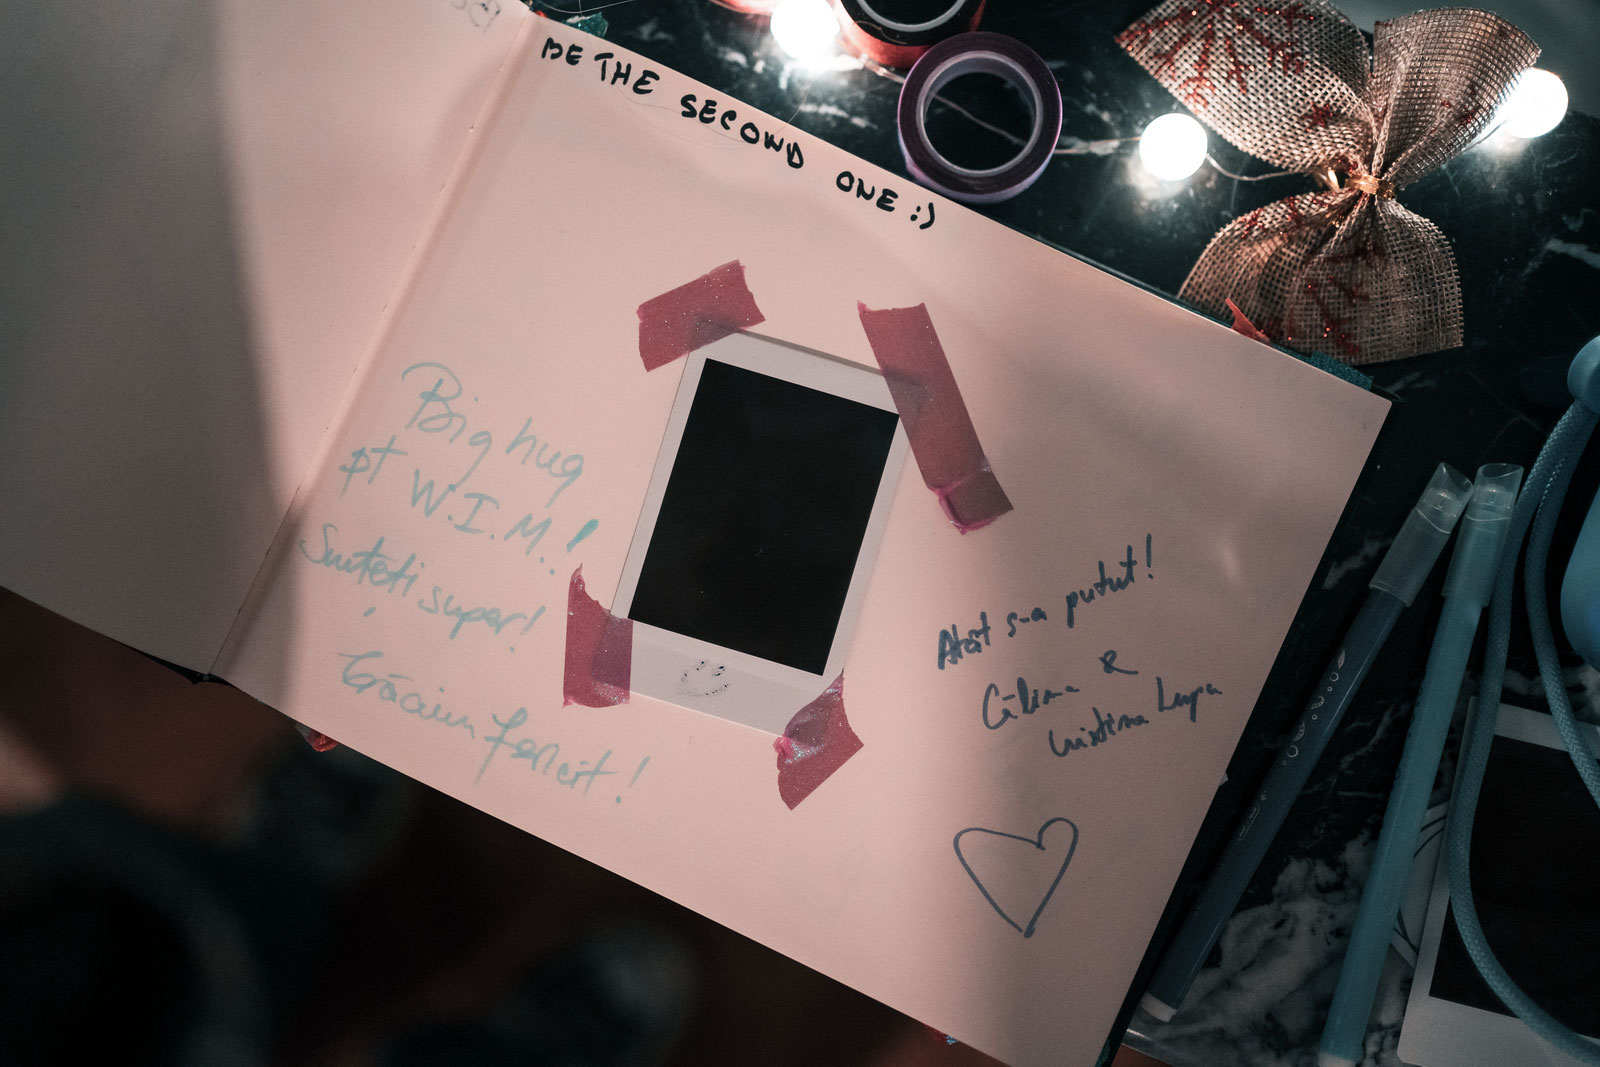 BE THE SECOND ONE :)
Big hug
pt W.I.M.!
Sunteți super!
Crăciun fericit!
Atât s-a putut!
Călina &
Cristina Lupu